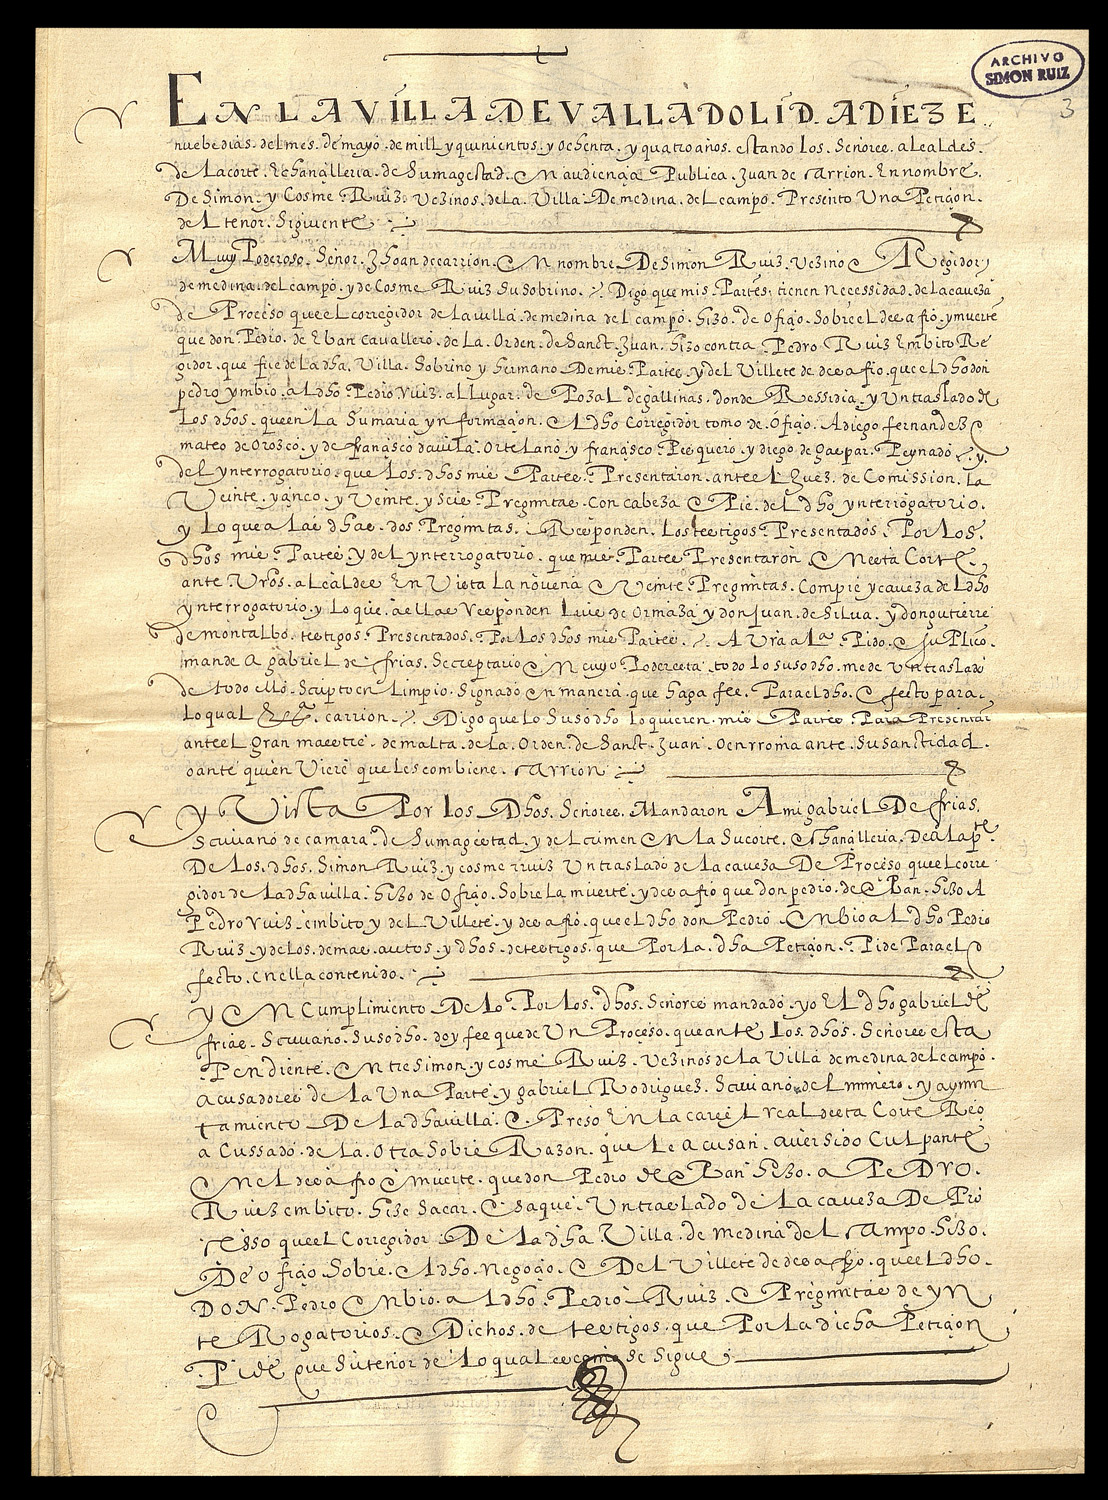 ARCHIVO
SIMON RUIZ
3
EN LA VILLA DE VALLADOLID. A DIEZ E
nuebe dias. del mes. de mayo. de mill y quinientos. y ochenta. y quatro años. estando los. señores. alcaldes.
de la corte. E chançilleria. de su magestad. En audiençia Publica. Juan de carrion. En nombre.
De simon. y Cosme. Ruiz. vezinos. de la. Villa. De medina. del campo. Presento Una Petiçion.
del tenor. siguiente
Muy Poderoso. señor. Jhoan de carrion. En nombre. De simon Ruiz. vezino E Regidor
de medina. del campo. y de Cosme Ruiz su sobrino. Digo que mis Partes. tienen necessidad. de la caveza
de Proceso que el corregidor de la villa. de medina. del campo. hizo. de ofiçio. sobre el desafio. y muerte
que don. Pedro. de Eban cavallero. de La. Orden. de Sanct. Juan. hizo contra Pedro Ruiz Embito Re
gidor. que fue de La dha. Villa. Sobrino y hermano De mis Partes. y del Villete de desafio. que el dho don
pedro ymbio. al dho. Pedro ruiz. al lugar. de Pozal de gallinas. donde Ressidia. y Un traslado de
Los dhos. que en La sumaria ynformaçion. El dho corregidor tomo de. ofiçio. A diego fernandez
mateo de orosco. y de françisco davila. ortelano. y françisco Pesquero. y diego de gaspar. Peynado. y.
del ynterrogatorio. que los. dhos mis Partes. Presentaron. ante el Juez. de Comission. la
Veinte. y çinco. y Veinte. y seis Preguntas. con cabeza E Pie. del dho ynterrogatorio.
y lo que a las dhas. dos Preguntas. Responden. Los testigos. Presentados. Por Los.
dhos mis. Partes. y del ynterrogatorio. que mis Partes Presentaron En esta Corte.
ante Vros. alcaldes En Vista la novena E veinte. Preguntas. Com pie y caveza del dho
ynterrogatorio. y lo que. a ellas Responden Luis de Ormaza y don Juan. de silva. y don gutierre
de montalbo. testigos. Presentados. Por Los dhos mis Partes. A Vra alª. Pido. E suplico
mande a gabriel de frias. Secreptario En cuyo Poder esta. todo lo susodho. me de Un traslado
de todo ello. Scripto en limpio. signado en manera. que haga fee. Para el dho. Efecto para.
lo qual carrion. Digo que lo susodho lo quieren. mis Partes Para Presentar
ante el gran maestre. de malta. de la. Orden. de Sanct. Juan. O en rroma ante. su sanctidad.
o ante quien Viere que les combiene. carrion
y Vista Por los Dhos. Señores. Mandaron A mi gabriel De frias.
Scrivano de camara. de su magestad. y del crimen En la su corte. E chançilleria. De a la pte
De Los. dhos. Simon Ruiz. y cosme rruiz Un traslado de la caveza De Proceso que el corre
gidor de la dha villa. hizo de ofiçio. Sobre la muerte. y desafio que don pedro. de Eban. hizo A
Pedro ruiz. embito. y del Villete. y desafio. que el dho don Pedro Enbio al dho Pedro
Ruiz. y de los. demas. autos. y dhos. de testigos. que Por La. dha Petiçion. Pide Para el E
fecto. en ella contenido.
y En cumplimiento De lo Por Los. dhos. Señores mandado. yo El dho gabriel de
frias. Scrivano. susodho. doy fee que de Un Proceso. que ante Los. dhos. Señores esta
Pendiente. Entre simon. y cosme Ruiz. vezinos de la Villa de medina del campo.
acusadores de la Una Parte. y gabriel Rodriguez. Scrivano. del numero. y ayun
tamiento De la dha villa. E. Preso En la carçel real desta Corte Reo
acussado. de la. otra Sobre Razon. que le acusan. aver sido culpante
En el desafio E muerte. que don Pedro de Eban hizo. a PEDRO.
Ruiz embito. hize sacar. E saque. Un traslado de la caveza De Pro
cesso que el Corregidor De la dha Villa. de medina del campo. hizo.
De ofiçio. Sobre. el dho. negoçio. E Del Villete de desafio. que el dho.
DON. Pedro Enbio. al dho. Pedro Ruiz. E Preguntas de yn
te Rogatorios. E Dichos. de testigos. que Por la dicha Petiçion
Pide que su tenor de lo qual es como se sigue